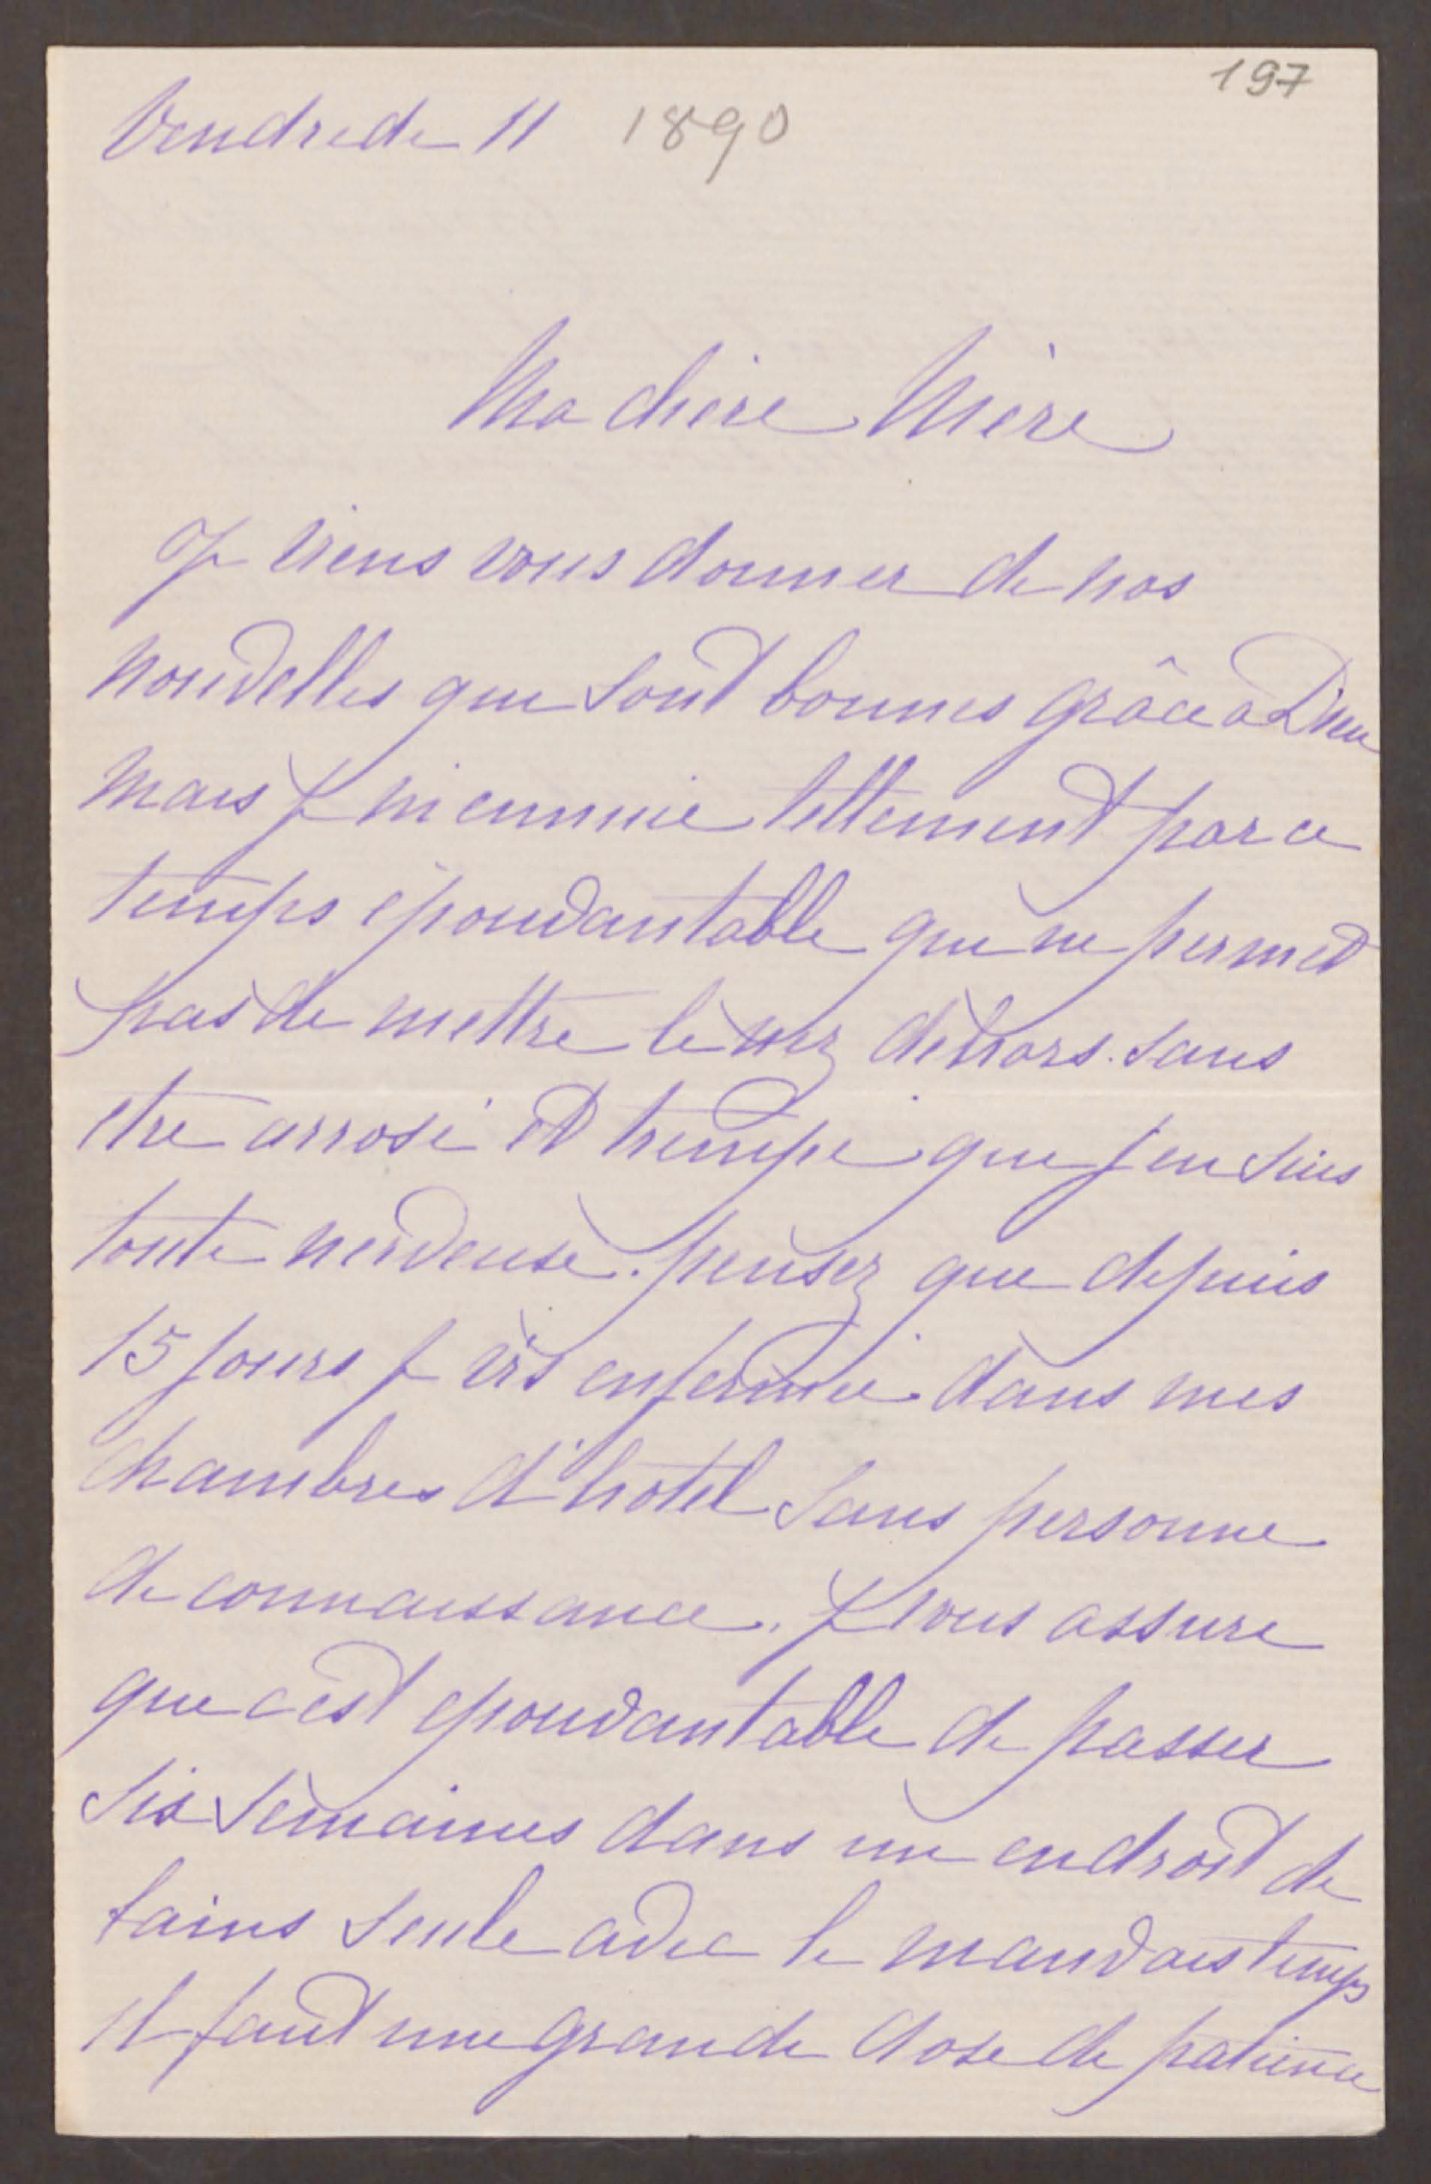 197
Vendredi 11 1890
Ma chère Mère
Je viens vous donner de nos
nouvelles qui sont bonnes grâce à Dieu
mais je m'ennuie tellement par ce
temps épouvantable qui ne permet
pas de mettre le nez dehors. sans
etre arrosé et trempé que j'en suis
toute nerveuse. pensez que depuis
15 jours je vis enfermée dans mes
chambres d'hotel sans personne
de connaissance. Je vous assure
que c'est epouvantable de passer
six semaines dans un endroit de
bains seule avec le mauvais temps
il faut une grande dose de patience